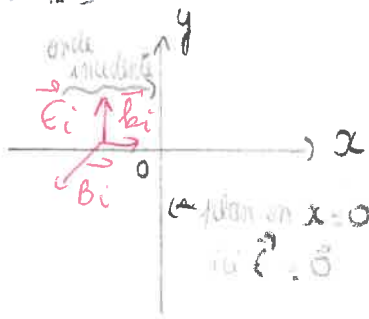 y
onde
incidente
E⃗i k⃗i
x
O
B⃗i
plan en x = 0
ici E⃗ = 0⃗